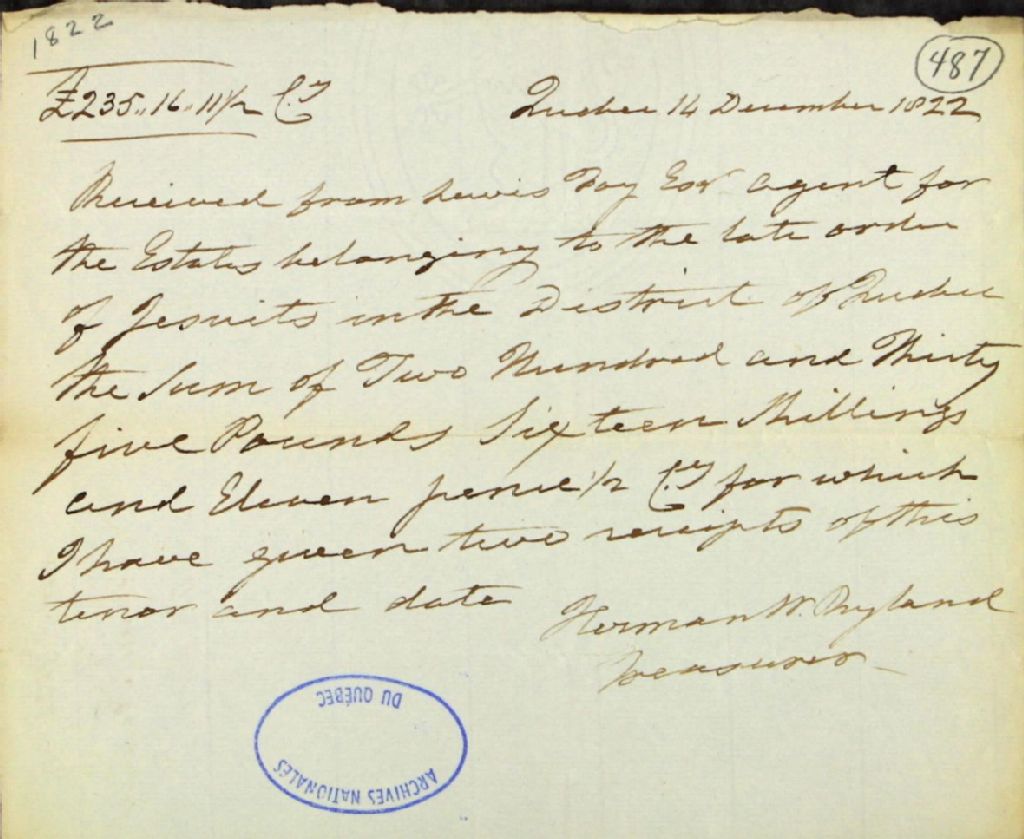 1822
487
£235..16..11½ C.y
Quebec 14 December 1822
Received from Lewis Foy Esqr agent for
the Estates belonging to the late order
of Jesuits in the District of Quebec
the Sum of Two Hundred and Thirty
five Pounds Sixteen Shillings
and Eleven pence ½ C.y for which
I have given two receipts of this
tenor and date
Herman W. Ryland
Treasurer
ARCHIVES NATIONALES
DU QUÉBEC